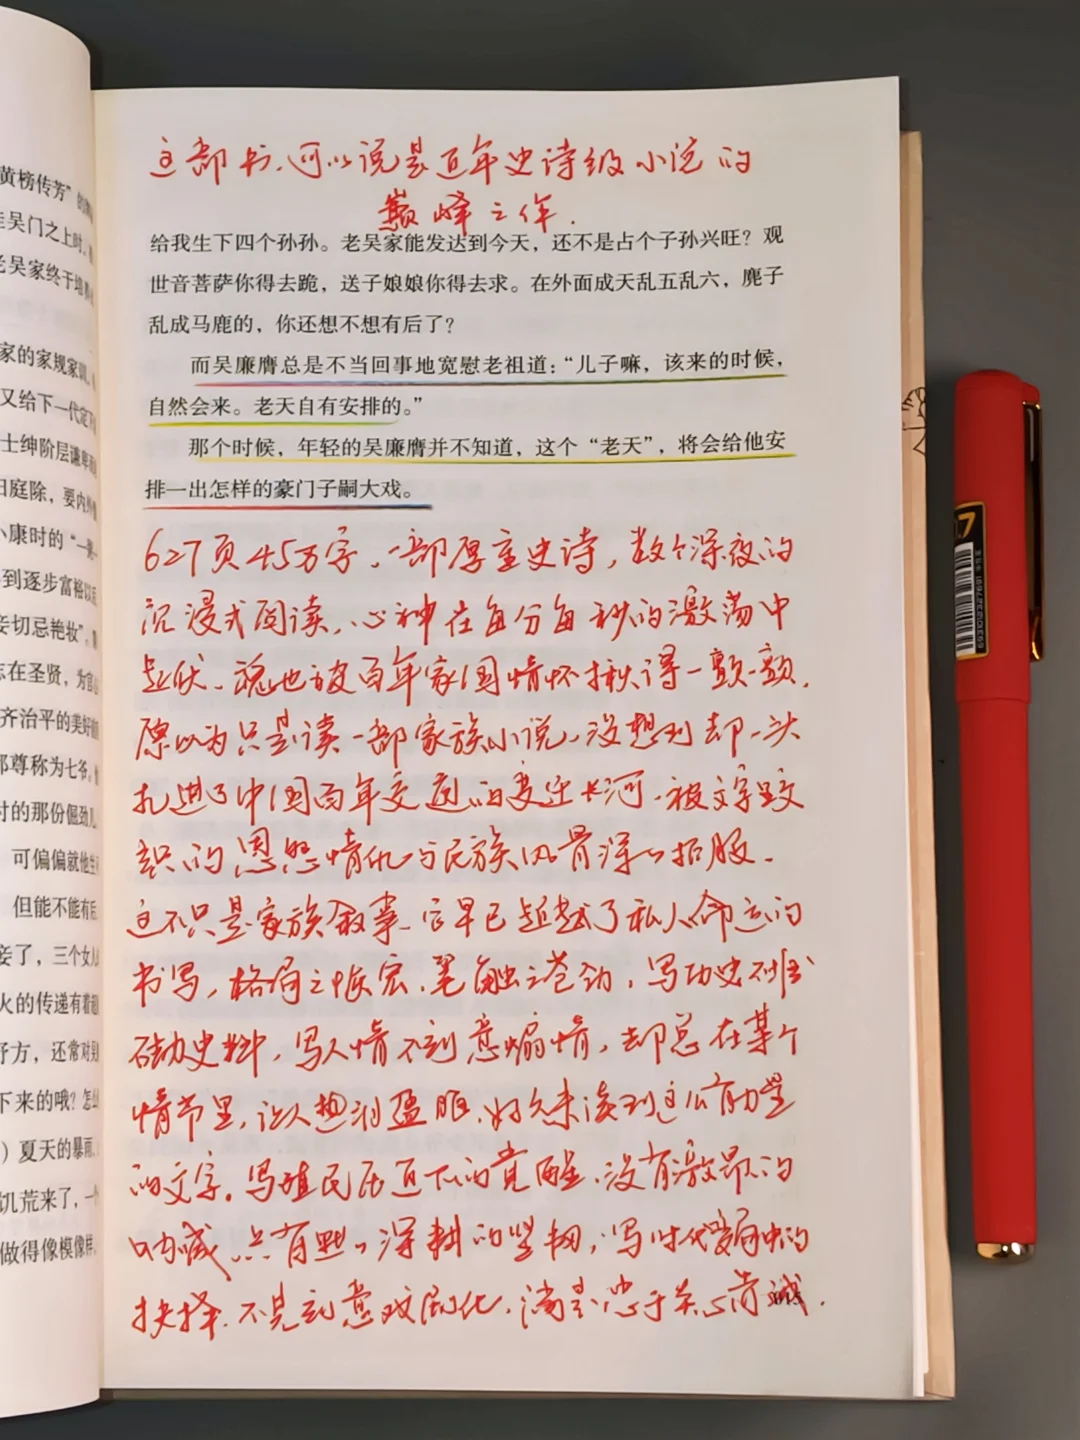 黄榜传芳”的
吴门之上时，
老吴家终于培
家的家规家训
又给下一代定下
士绅阶层谦卑
日庭除，要内外
小康时的“一
到逐步富裕以后
妾切忌艳妆”，
志在圣贤，为官心
齐治平的美好
郎尊称为七爷，
时的那份倔劲儿
可偏偏就他生
但能不能有后
妾了，三个女人
火的传递有着超
野方，还常对吴
下来的哦？怎么
）夏天的暴雨、
饥荒来了，一
做得像模像样，
这部书、可以说是近年史诗级小说的
巅峰之作．
给我生下四个孙孙。老吴家能发达到今天，还不是占个子孙兴旺？观
世音菩萨你得去跪，送子娘娘你得去求。在外面成天乱五乱六，麂子
乱成马鹿的，你还想不想有后了？
而吴廉膺总是不当回事地宽慰老祖道：“儿子嘛，该来的时候，
自然会来。老天自有安排的。”
那个时候，年轻的吴廉膺并不知道，这个“老天”，将会给他安
排一出怎样的豪门子嗣大戏。
627页45万字，一部厚重史诗，数个深夜的
沉浸式阅读，心神在每分每秒的激荡中
起伏、魂也被百年家国情怀揪得一颤一颤．
原以为只是读一部家族小说、没想到却一头
扎进了中国百年交迭的变迁长河、被文字里交
织的恩怨情仇与民族风骨深深折服．
这不只是家族叙事、它早已超越了私人命运的
书写，格局之恢宏、笔触之苍劲，写历史不堆
砌史料，写人情不刻意煽情，却总在某个
情节里，让人想泪盈眶、好久未读到这么有力量
的文字。写殖民压迫下的觉醒、没有激昂的
呐喊、只有默默深耕的坚韧，写时代变局中的
抉择、不见刻意戏剧化，满是忠于关心赤诚．
0.7